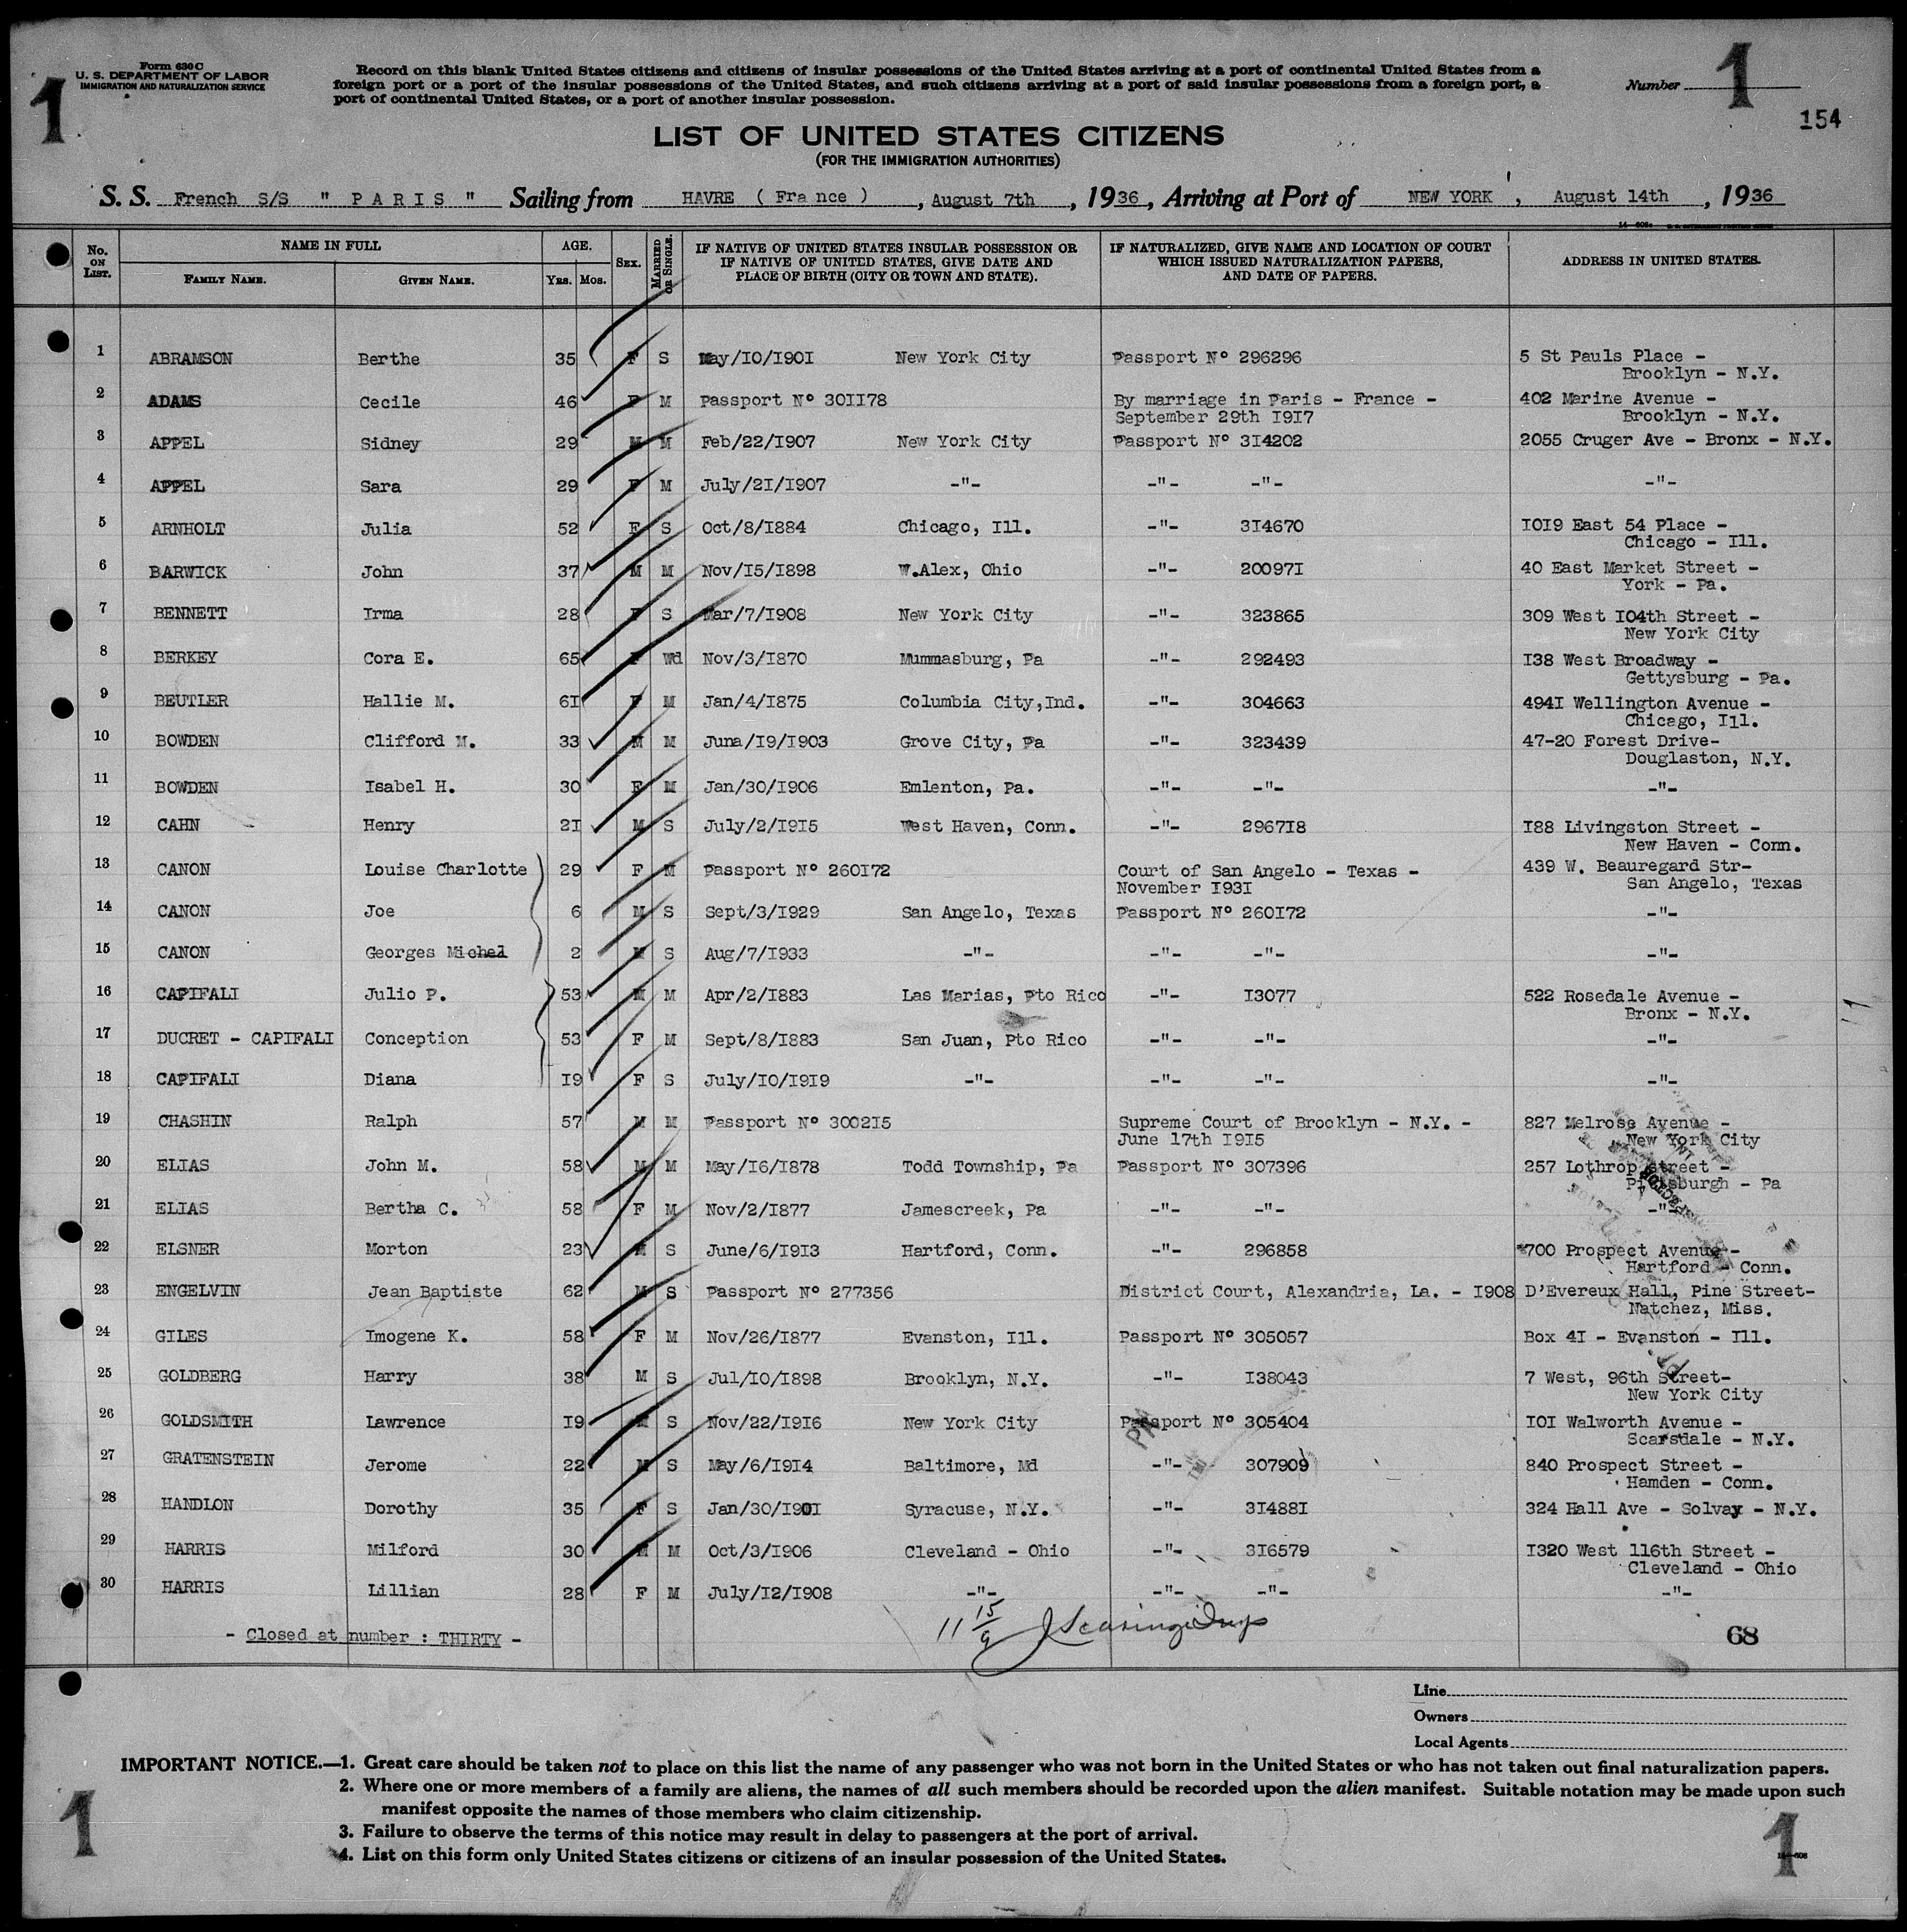 1
Form 630 C
U. S. DEPARTMENT OF LABOR
IMMIGRATION AND NATURALIZATION SERVICE
Record on this blank United States citizens and citizens of insular possessions of the United States arriving at a port of continental United States from a
foreign port or a port of the insular possessions of the United States, and such citizens arriving at a port of said insular possessions from a foreign port, a
port of continental United States, or a port of another insular possession.
Number 1
154
LIST OF UNITED STATES CITIZENS
(FOR THE IMMIGRATION AUTHORITIES)
S. S. French S/S " P A R I S " Sailing from HAVRE ( Fra nce ) , August 7th , 1936, Arriving at Port of NEW YORK , August 14th , 1936
No. ON LIST. NAME IN FULL AGE. SEX. MARRIED OR SINGLE. IF NATIVE OF UNITED STATES INSULAR POSSESSION OR IF NATIVE OF UNITED STATES, GIVE DATE AND PLACE OF BIRTH (CITY OR TOWN AND STATE). IF NATURALIZED, GIVE NAME AND LOCATION OF COURT WHICH ISSUED NATURALIZATION PAPERS, AND DATE OF PAPERS. ADDRESS IN UNITED STATES.
FAMILY NAME. GIVEN NAME. YRS. MOS.
1 ABRAMSON Berthe 35 F S May/I0/I90I New York City Passport N° 296296 5 St Pauls Place -
Brooklyn - N.Y.
2 ADAMS Cecile 46 F M Passport N° 30II78 By marriage in Paris - France - 402 Marine Avenue -
September 29th I9I7 Brooklyn - N.Y.
3 APPEL Sidney 29 M M Feb/22/I907 New York City Passport N° 3I4202 2055 Cruger Ave - Bronx - N.Y.
4 APPEL Sara 29 F M July/2I/I907 -"- -"- -"- -"-
5 ARNHOLT Julia 52 F S Oct/8/I884 Chicago, Ill. -"- 3I4670 I0I9 East 54 Place -
Chicago - Ill.
6 BARWICK John 37 M M Nov/I5/I898 W.Alex, Ohio -"- 20097I 40 East Market Street -
York - Pa.
7 BENNETT Irma 28 F S Mar/7/I908 New York City -"- 323865 309 West I04th Street -
New York City
8 BERKEY Cora E. 65 F Wd Nov/3/I870 Mummasburg, Pa -"- 292493 I38 West Broadway -
Gettysburg - Pa.
9 BEUTLER Hallie M. 6I F M Jan/4/I875 Columbia City,Ind. -"- 304663 494I Wellington Avenue -
Chicago, Ill.
10 BOWDEN Clifford M. 33 M M Juna/I9/I903 Grove City, Pa -"- 323439 47-20 Forest Drive-
Douglaston, N.Y.
11 BOWDEN Isabel H. 30 F M Jan/30/I906 Emlenton, Pa. -"- -"- -"-
12 CAHN Henry 2I M S July/2/I9I5 West Haven, Conn. -"- 2967I8 I88 Livingston Street -
New Haven - Conn.
13 CANON Louise Charlotte 29 F M Passport N° 260I72 Court of San Angelo - Texas - 439 W. Beauregard Str-
November I93I San Angelo, Texas
14 CANON Joe 6 M S Sept/3/I929 San Angelo, Texas Passport N° 260I72 -"-
15 CANON Georges Michel 2 M S Aug/7/I933 -"- -"- -"- -"-
16 CAPIFALI Julio P. 53 M M Apr/2/I883 Las Marias, Pto Rico -"- I3077 522 Rosedale Avenue -
Bronx - N.Y.
17 DUCRET - CAPIFALI Conception 53 F M Sept/8/I883 San Juan, Pto Rico -"- -"- -"-
18 CAPIFALI Diana I9 F S July/I0/I9I9 -"- -"- -"- -"-
19 CHASHIN Ralph 57 M M Passport N° 3002I5 Supreme Court of Brooklyn - N.Y. - 827 Melrose Avenue -
June I7th I9I5 New York City
20 ELIAS John M. 58 M M May/I6/I878 Todd Township, Pa Passport N° 307396 257 Lothrop Street -
Pittsburgh - Pa
21 ELIAS Bertha C. 58 F M Nov/2/I877 Jamescreek, Pa -"- -"- -"-
22 ELSNER Morton 23 M S June/6/I9I3 Hartford, Conn. -"- 296858 700 Prospect Avenue -
Hartford - Conn.
23 ENGELVIN Jean Baptiste 62 M S Passport N° 277356 District Court, Alexandria, La. - I908 D'Evereux Hall, Pine Street-
Natchez, Miss.
24 GILES Imogene K. 58 F M Nov/26/I877 Evanston, Ill. Passport N° 305057 Box 4I - Evanston - Ill.
25 GOLDBERG Harry 38 M S Jul/I0/I898 Brooklyn, N.Y. -"- I38043 7 West, 96th Street-
New York City
26 GOLDSMITH Lawrence I9 M S Nov/22/I9I6 New York City Passport N° 305404 I0I Walworth Avenue -
Scarsdale - N.Y.
27 GRATENSTEIN Jerome 22 M S May/6/I9I4 Baltimore, Md -"- 307909 840 Prospect Street -
Hamden - Conn.
28 HANDLON Dorothy 35 F S Jan/30/I90I Syracuse, N.Y. -"- 3I488I 324 Hall Ave - Solvay - N.Y.
29 HARRIS Milford 30 M M Oct/3/I906 Cleveland - Ohio -"- 3I6579 I320 West 116th Street -
Cleveland - Ohio
30 HARRIS Lillian 28 F M July/I2/I908 -"- -"- -"- -"-
- Closed at number : THIRTY -
11 15/9
68
Line
Owners
Local Agents
IMPORTANT NOTICE.—1. Great care should be taken not to place on this list the name of any passenger who was not born in the United States or who has not taken out final naturalization papers.
2. Where one or more members of a family are aliens, the names of all such members should be recorded upon the alien manifest. Suitable notation may be made upon such
manifest opposite the names of those members who claim citizenship.
3. Failure to observe the terms of this notice may result in delay to passengers at the port of arrival.
4. List on this form only United States citizens or citizens of an insular possession of the United States.
1
1